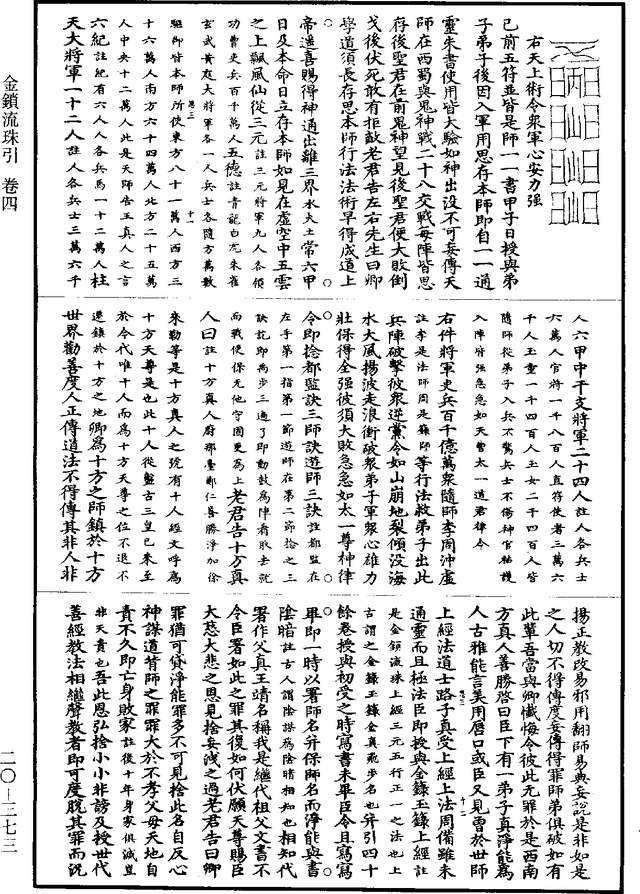 右天上術令衆軍心安力强
已前五符並皆是師一一書甲子日授與弟
子弟子後因入軍用思存本師即自一一通
靈朱書使用皆大驗如神出沒不可妄傳天
師在西蜀與鬼神戰二十八交戰每陣皆思
存後聖君在前鬼神望見後聖君便大敗倒
戈後伏死敢有拒敵老君告左右先生曰卿
學道須長存思本師行法法術早得成道上
帝遥喜賜得神通出離三界水火土常六甲
日及本命日立存本師如見在虛空中五雲
之上飄風仙從三元註三元將軍九人各領
功曹吏兵百千萬人五德註青龍白虎朱雀
玄武黃庭大將軍各一人兵士各隨方萬數
駈御皆本師所使東方八十一萬人西方三
十六萬人南方六十四萬人北方二十五萬
人中央十二萬人此是天師告王真人之言
六紀註紀有六人人各兵馬一十二萬人柱
天大將軍一十二人註人各兵士三萬六千
人六甲中干支將軍二十四人註人各兵士
六萬人官將一千八百人直符使者三萬六
千人玉童一千四百人玉女二千四百人皆
隨師從弟子入兵不驚兵士不傷神官祐護
入陣皆强急急如天曹太一道君律令
右件將軍吏兵百千億萬衆隨師李周沖虛
註李是法師周是籙師等行法救弟子出此
兵陣破擊彼衆逆黨令如山崩地裂傾没海
水大風揚波走浪衝破衆弟子軍衆心雄力
壯保得全强彼須大敗急急如太一尊神律
令即捻都監訣三師訣遊師三訣註都監在
左手第一指第一節遊師在第二節捻之三
訣訖即禹步三遍了即動鼓為陣看取去就
而戰使保无他守固更為上老君告十方真
人曰註十方真人府那臺鄭仁喜勝淨加徐
來勒等是十方真人之號有十人經文呼為
十方天尊是也此十人從盤古三皇已來至
於今代唯十人而為十方天尊之位不退不
遷鎮於十方之地卿為十方之師鎮於十方
世界勸善度人正傳道法不得傳其非人非
揚正教改易邪用翻師易典妄説是非如是
之人切不得傳度妄傳得罪師弟俱破如有
此輩吾當與卿懺悔令彼此无罪於是西南
方真人善勝啓曰臣下有一弟子真淨能為
人古雅能言美用唇口或臣又見曾於世師
上經法道士路子真受上經上法周備雖未
通靈而且極法臣即授與金錄玉錄上經註
是金鎖流珠上經三元五行正一之法也上
古謂之金錄玉錄金真飛步名也并引四十
餘卷授與初受之時寫書未畢臣令且寫寫
畢即一時以署師名并保師名而淨能與書
陰暗註古人謂陰謀為陰暗相知也相知代
署作父真王靖名稱我是繼代祖父文書不
令臣署如此之罪其復如何伏願天尊賜臣
大慈大悲之恩見捨妄洩之過老君告曰卿
罪猶可貸淨能罪多不可見捨此名自反心
神謀道背師之罪罪大於不孝父母天地自
責不久即亡身敗家註後十年身家俱滅豈
非天責也吾此恩弘捨小小非謗及授世代
善經教法相繼聲教者即可度脫其罪而況
金鎖流珠引 卷四
二〇—三七三